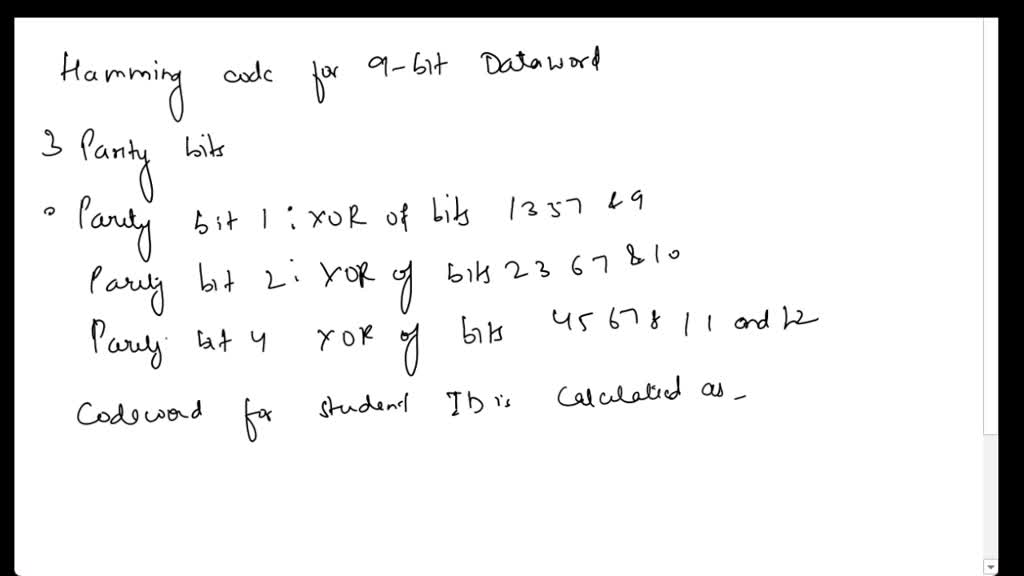 Hamming code for 9-bit Dataword
3 Parity bits
Parity bit 1 : XOR of bits 1 3 5 7 & 9
Parity bit 2 : XOR of bits 2 3 6 7 & 10
Parity bit 4 XOR of bits 4 5 6 7 & 11 and 12
Codeword for student ID is calculated as -